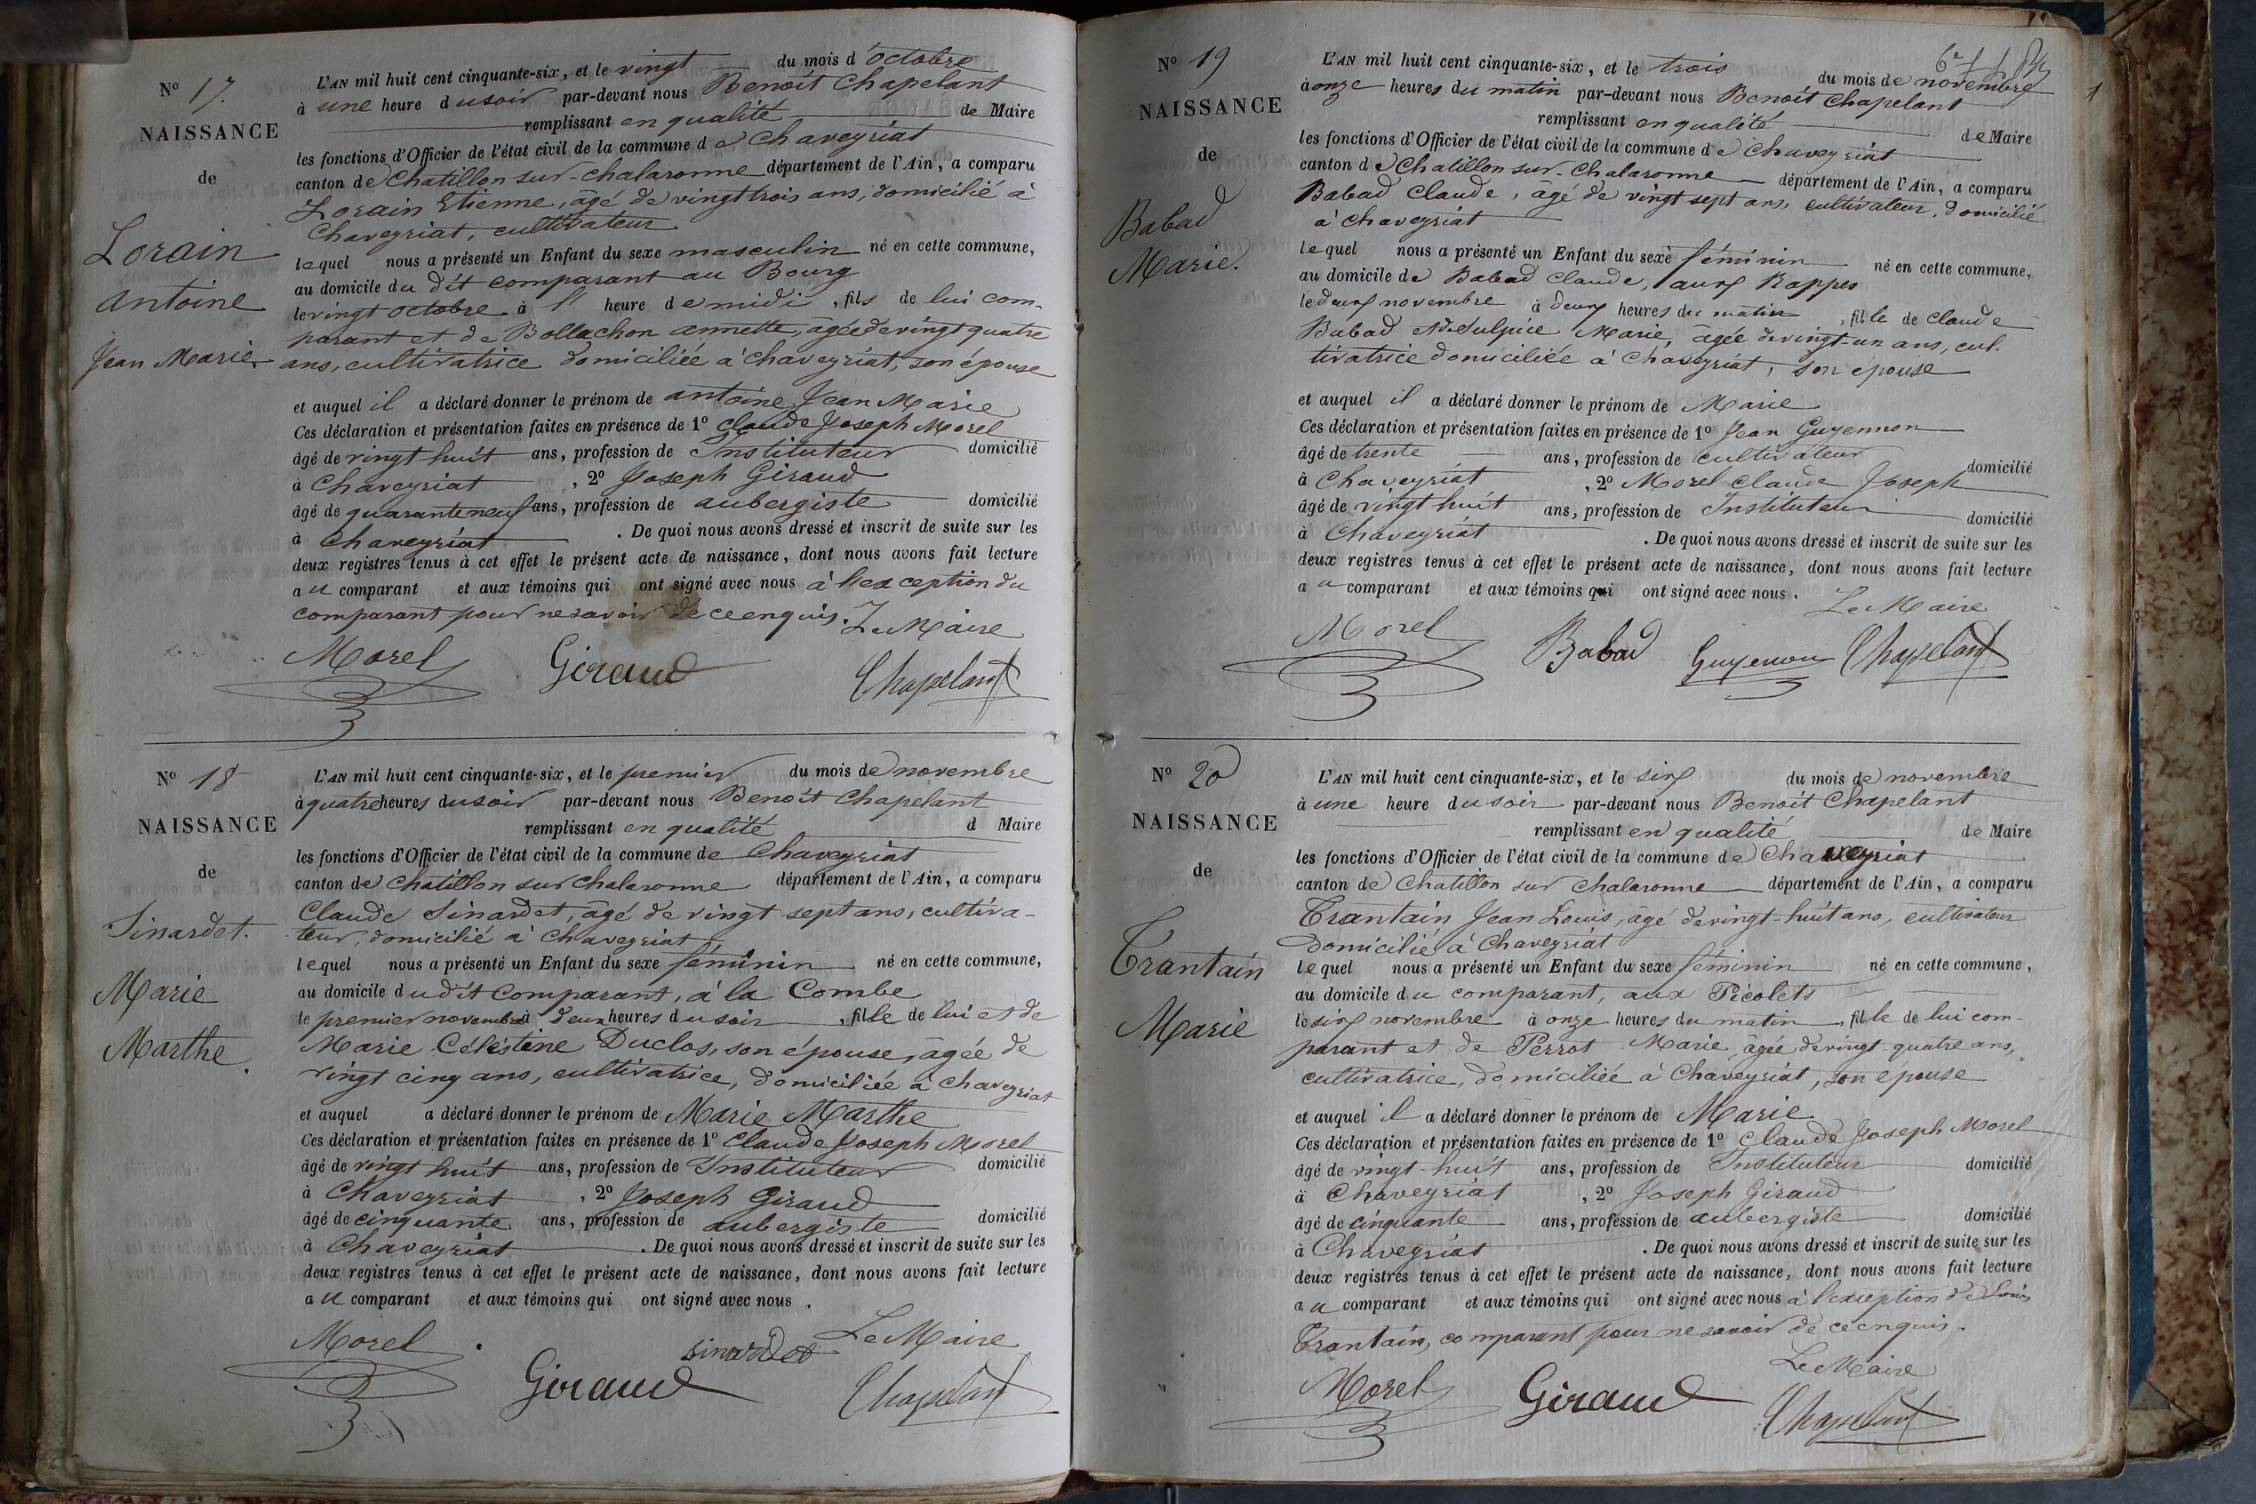 N° 17.
NAISSANCE
de
Lorain
antoine
Jean Marie.
L'AN mil huit cent cinquante-six, et le vingt du mois d'octobre
à une heure du soir par-devant nous Benoît Chapelant
remplissant en qualité de Maire
les fonctions d'Officier de l'état civil de la commune de Chaveyriat
canton de Chatillon sur-chalaronne département de l'Ain, a comparu
Lorain Etienne, âgé de vingt trois ans, domicilié à
Chaveyriat, cultivateur
lequel nous a présenté un Enfant du sexe masculin né en cette commune,
au domicile du dit comparant au Bourg
le vingt octobre à l' heure de midi, fils de lui com-
parant et de Bollachon annette, âgée de vingt quatre
ans, cultivatrice domiciliée à chaveyriat, son épouse
et auquel il a déclaré donner le prénom de antoine Jean Marie
Ces déclaration et présentation faites en présence de 1° Claude Joseph Morel
âgé de vingt huit ans, profession de Instituteur domicilié
à Chaveyriat, 2° Joseph Giraud
âgé de quarante neuf ans, profession de aubergiste domicilié
à Chaveyriat. De quoi nous avons dressé et inscrit de suite sur les
deux registres tenus à cet effet le présent acte de naissance, dont nous avons fait lecture
au comparant et aux témoins qui ont signé avec nous à l'exception du
comparant pour ne savoir de ce enquis. Le Maire
Morel Giraud Chapelant
N° 18
NAISSANCE
de
Sinardet.
Marie
Marthe.
L'AN mil huit cent cinquante-six, et le premier du mois de novembre
à quatre heures du soir par-devant nous Benoît Chapelant
remplissant en qualité d Maire
les fonctions d'Officier de l'état civil de la commune de Chaveyriat
canton de Chatillon sur Chalaronne département de l'Ain, a comparu
Claude Sinardet, âgé de vingt sept ans, cultiva-
teur, domicilié à Chaveyriat
lequel nous a présenté un Enfant du sexe féminin né en cette commune,
au domicile dudit comparant, à la Combe
le premier novembre à deux heures du soir, fille de lui et de
Marie Célestine Duclos, son épouse, âgée de
vingt cinq ans, cultivatrice, domiciliée à chaveyriat
et auquel a déclaré donner le prénom de Marie Marthe
Ces déclaration et présentation faites en présence de 1° Claude Joseph Morel
âgé de vingt huit ans, profession de Instituteur domicilié
à Chaveyriat, 2° Joseph Giraud
âgé de cinquante ans, profession de aubergiste domicilié
à Chaveyriat. De quoi nous avons dressé et inscrit de suite sur les
deux registres tenus à cet effet le présent acte de naissance, dont nous avons fait lecture
au comparant et aux témoins qui ont signé avec nous.
Le Maire
Morel Giraud sinardet Chapelant
N° 19
NAISSANCE
de
Babad
Marie.
L'AN mil huit cent cinquante-six, et le trois du mois de novembre
à onze heures du matin par-devant nous Benoît Chapelant
remplissant en qualité de Maire
les fonctions d'Officier de l'état civil de la commune de Chaveyriat
canton de Chatillon sur-Chalaronne département de l'Ain, a comparu
Babad Claude, âgé de vingt sept ans, cultivateur, domicilié
à chaveyriat
lequel nous a présenté un Enfant du sexe féminin né en cette commune,
au domicile de Babad Claude, aux Rappes
le deux novembre à deux heures du matin, fille de Claude
Babad et de Sulpice Marie, âgée de vingt-un ans, cul.
tivatrice domiciliée à Chaveyriat, son épouse
et auquel il a déclaré donner le prénom de Marie
Ces déclaration et présentation faites en présence de 1° Jean Guyennon
âgé de trente ans, profession de cultivateur domicilié
à Chaveyriat, 2° Morel Claude Joseph
âgé de vingt huit ans, profession de Instituteur domicilié
à Chaveyriat. De quoi nous avons dressé et inscrit de suite sur les
deux registres tenus à cet effet le présent acte de naissance, dont nous avons fait lecture
au comparant et aux témoins qui ont signé avec nous. Le Maire
Morel Babad Guyennon Chapelant
N° 20
NAISSANCE
de
Trantain
Marie
L'AN mil huit cent cinquante-six, et le six du mois de novembre
à une heure du soir par-devant nous Benoît Chapelant
remplissant en qualité de Maire
les fonctions d'Officier de l'état civil de la commune de Chaveyriat
canton de Chatillon sur Chalaronne département de l'Ain, a comparu
Trantain Jean Louis, âgé de vingt-huit ans, cultivateur
domicilié à Chaveyriat
lequel nous a présenté un Enfant du sexe féminin né en cette commune,
au domicile du comparant, aux Picolets
le six novembre à onze heures du matin, fille de lui com-
parant et de Perrot Marie, âgée de vingt-quatre ans,
cultivatrice, domiciliée à Chaveyriat, son épouse
et auquel il a déclaré donner le prénom de Marie
Ces déclaration et présentation faites en présence de 1° Claude Joseph Morel
âgé de vingt-huit ans, profession de Instituteur domicilié
à Chaveyriat, 2° Joseph Giraud
âgé de cinquante ans, profession de aubergiste domicilié
à Chaveyriat. De quoi nous avons dressé et inscrit de suite sur les
deux registres tenus à cet effet le présent acte de naissance, dont nous avons fait lecture
au comparant et aux témoins qui ont signé avec nous à l'exception de Louis
Trantain, comparant pour ne savoir de ce enquis.
Le Maire
Morel Giraud Chapelant